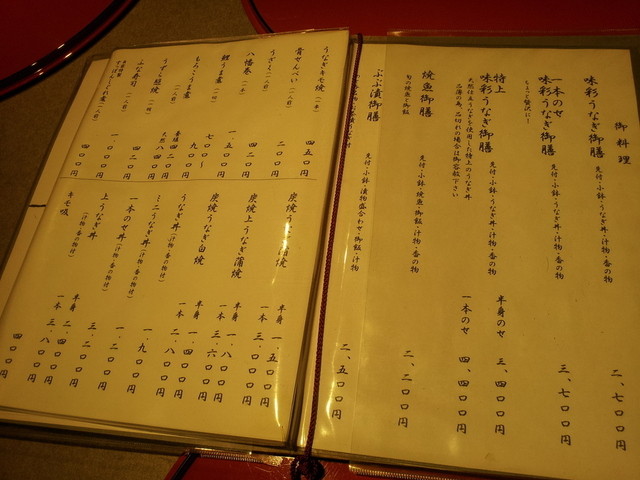 御料理
味彩うなぎ御膳 先付・小鉢・うなぎ丼・汁物・香の物 二、七〇〇円
一本のせ
味彩うなぎ御膳 先付・小鉢・うなぎ丼・汁物・香の物 三、七〇〇円
ちょっと贅沢に!
特上
味彩うなぎ御膳 先付・小鉢・うなぎ丼・汁物・香の物 半身のせ 三、四〇〇円
天然仕立うなぎを使用した特上のうなぎ丼
一本のせ 四、四〇〇円
品薄の為、品切れの場合は御容赦下さい
焼魚御膳 先付・小鉢・焼魚・御飯・汁物・香の物 二、二〇〇円
旬の焼魚と御飯
ぶぶ漬御膳 先付・小鉢・漬物盛合わせ・御飯・汁物 二、五〇〇円
うなぎキモ焼(一本) 四五〇円
骨せんべい(一人前) 二〇〇円
うざく(一人前)
八幡巻(一本) 四二〇円
鯉うま煮(一切) 一、五〇〇円
もろこうま煮 七〇〇〜
九〇〇円
うずら照焼(一切) 養殖 四二〇円
天然 八四〇円
ふな寿司(一人前) 一、〇〇〇円
(一人前) 四〇〇円
炭焼うなぎ蒲焼 半身 一、五〇〇円
一本 三、〇〇〇円
炭焼上うなぎ蒲焼 半身 一、八〇〇円
一本 三、六〇〇円
炭焼うなぎ白焼 半身
一本 二、八〇〇円
うなぎ丼(汁物・香の物付) 一、九〇〇円
ミニうなぎ丼(汁物・香の物付) 一、二〇〇円
一本のせ丼(汁物・香の物付) 三、二〇〇円
上うなぎ丼(汁物・香の物付) 半身 二、四〇〇円
一本 三、八〇〇円
キモ吸 四〇〇円